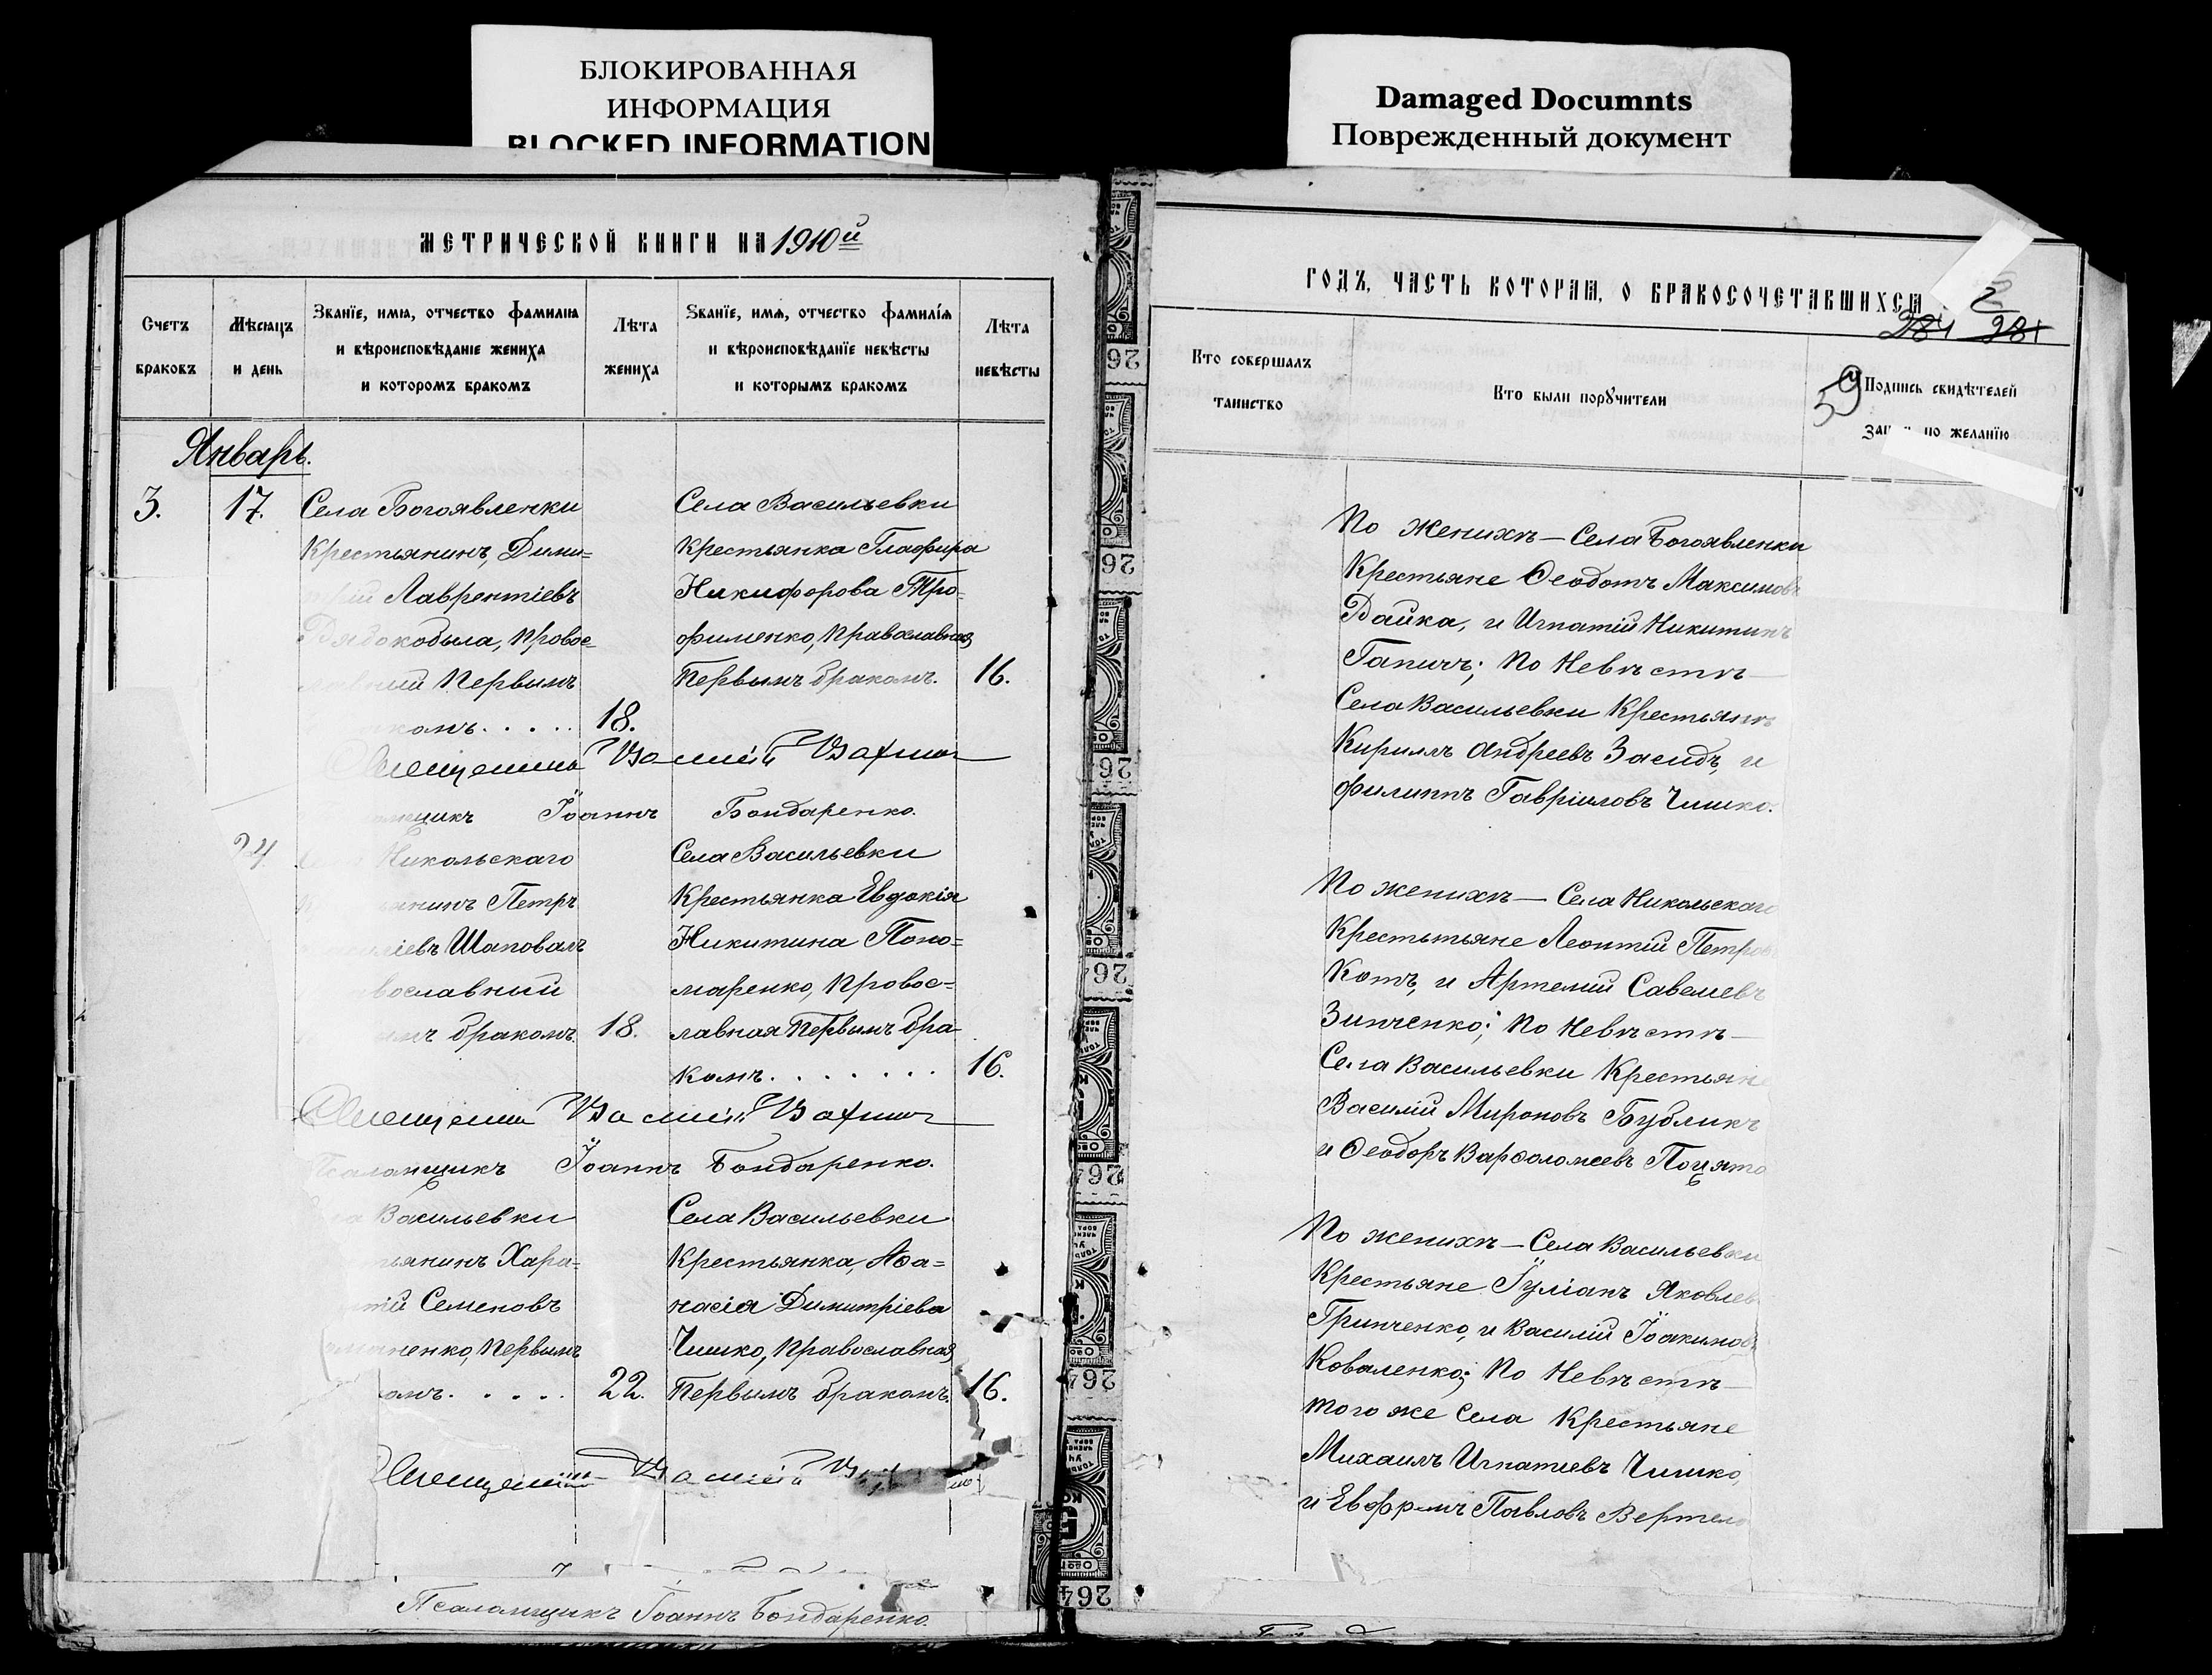 БЛОКИРОВАННАЯ
ИНФОРМАЦИЯ
BLOCKED INFORMATION
Damaged Documnts
Поврежденный документ
МЕТРИЧЕСКОЙ КНИГИ НА 1910й
Счетъ браковъ
Мѣсяцъ и день
Званїе, имя, отчество фамилія
и вѣроисповѣданіе жениха
и которомъ бракомъ
Лѣта жениха
Званїе, имя, отчество фамилія
и вѣроисповѣданїе невѣсты
и которымъ бракомъ
Лѣта невѣсты
Январь.
3. 17.
Села Богоявленки
Крестьянинъ, Дими=
Лаврентіевъ
кобыла, Провос=
Первымъ
18.
Села Васильевки
Крестьянка Глафира
Никифорова Тро=
фименко, Православная,
Первымъ бракомъ. 16.
Іоаннъ Бондаренко.
24
Никольскаго
Петръ
Шаповалъ
вославный
бракомъ. 18.
Села Васильевки
Крестьянка Евдокія
Никитина Поно=
маренко, Провос=
лавная Первымъ бра
комъ. . . . . . . 16.
Псаломщикъ Іоаннъ Бондаренко.
Васильевки
Хара=
Семеновъ
ненко, Первымъ
омъ. . . . . 22.
Села Васильевки
Крестьянка, Аѳа=
насія Димитріева
Чишко, Православная,
Первымъ бракомъ. 16.
Псаломщикъ Іоаннъ Бондаренко.
ГОДЪ, ЧАСТЬ КОТОРАЯ, О БРАКОСОЧЕТАВШИХСЯ
284 281
59
Кто совершалъ
таинство
Кто были порꙋчители
Подпись свидѣтелей
по желанїю
По Женихѣ — Села Богоявленки
Крестьяне Ѳеодотъ Максимовъ
Дайка, и Игнатій Никитинъ
Гапичъ; По Невѣстѣ —
Села Васильевки Крестьяне
Кириллъ Андреевъ Засидъ, и
Филиппъ Гавріиловъ Чишко.
По женихѣ — Села Никольскаго
Крестьтьяне Леонтій Петров
Котъ, и Артемий Савелиевъ
Зинченко; По Невѣстѣ —
Села Васильевки Крестьяне
Василій Мироновъ Бубликъ
и Ѳеодоръ Варѳоломеевъ Поцято
По женихѣ — Села Васильевки
Крестьяне Іуліанъ Яковлев
Гринченко, и Василій Іоакимовъ
Коваленко; По Невѣстѣ —
того же Села Крестьяне
Михаилъ Игнатиевъ Чишко,
и Павловъ
264